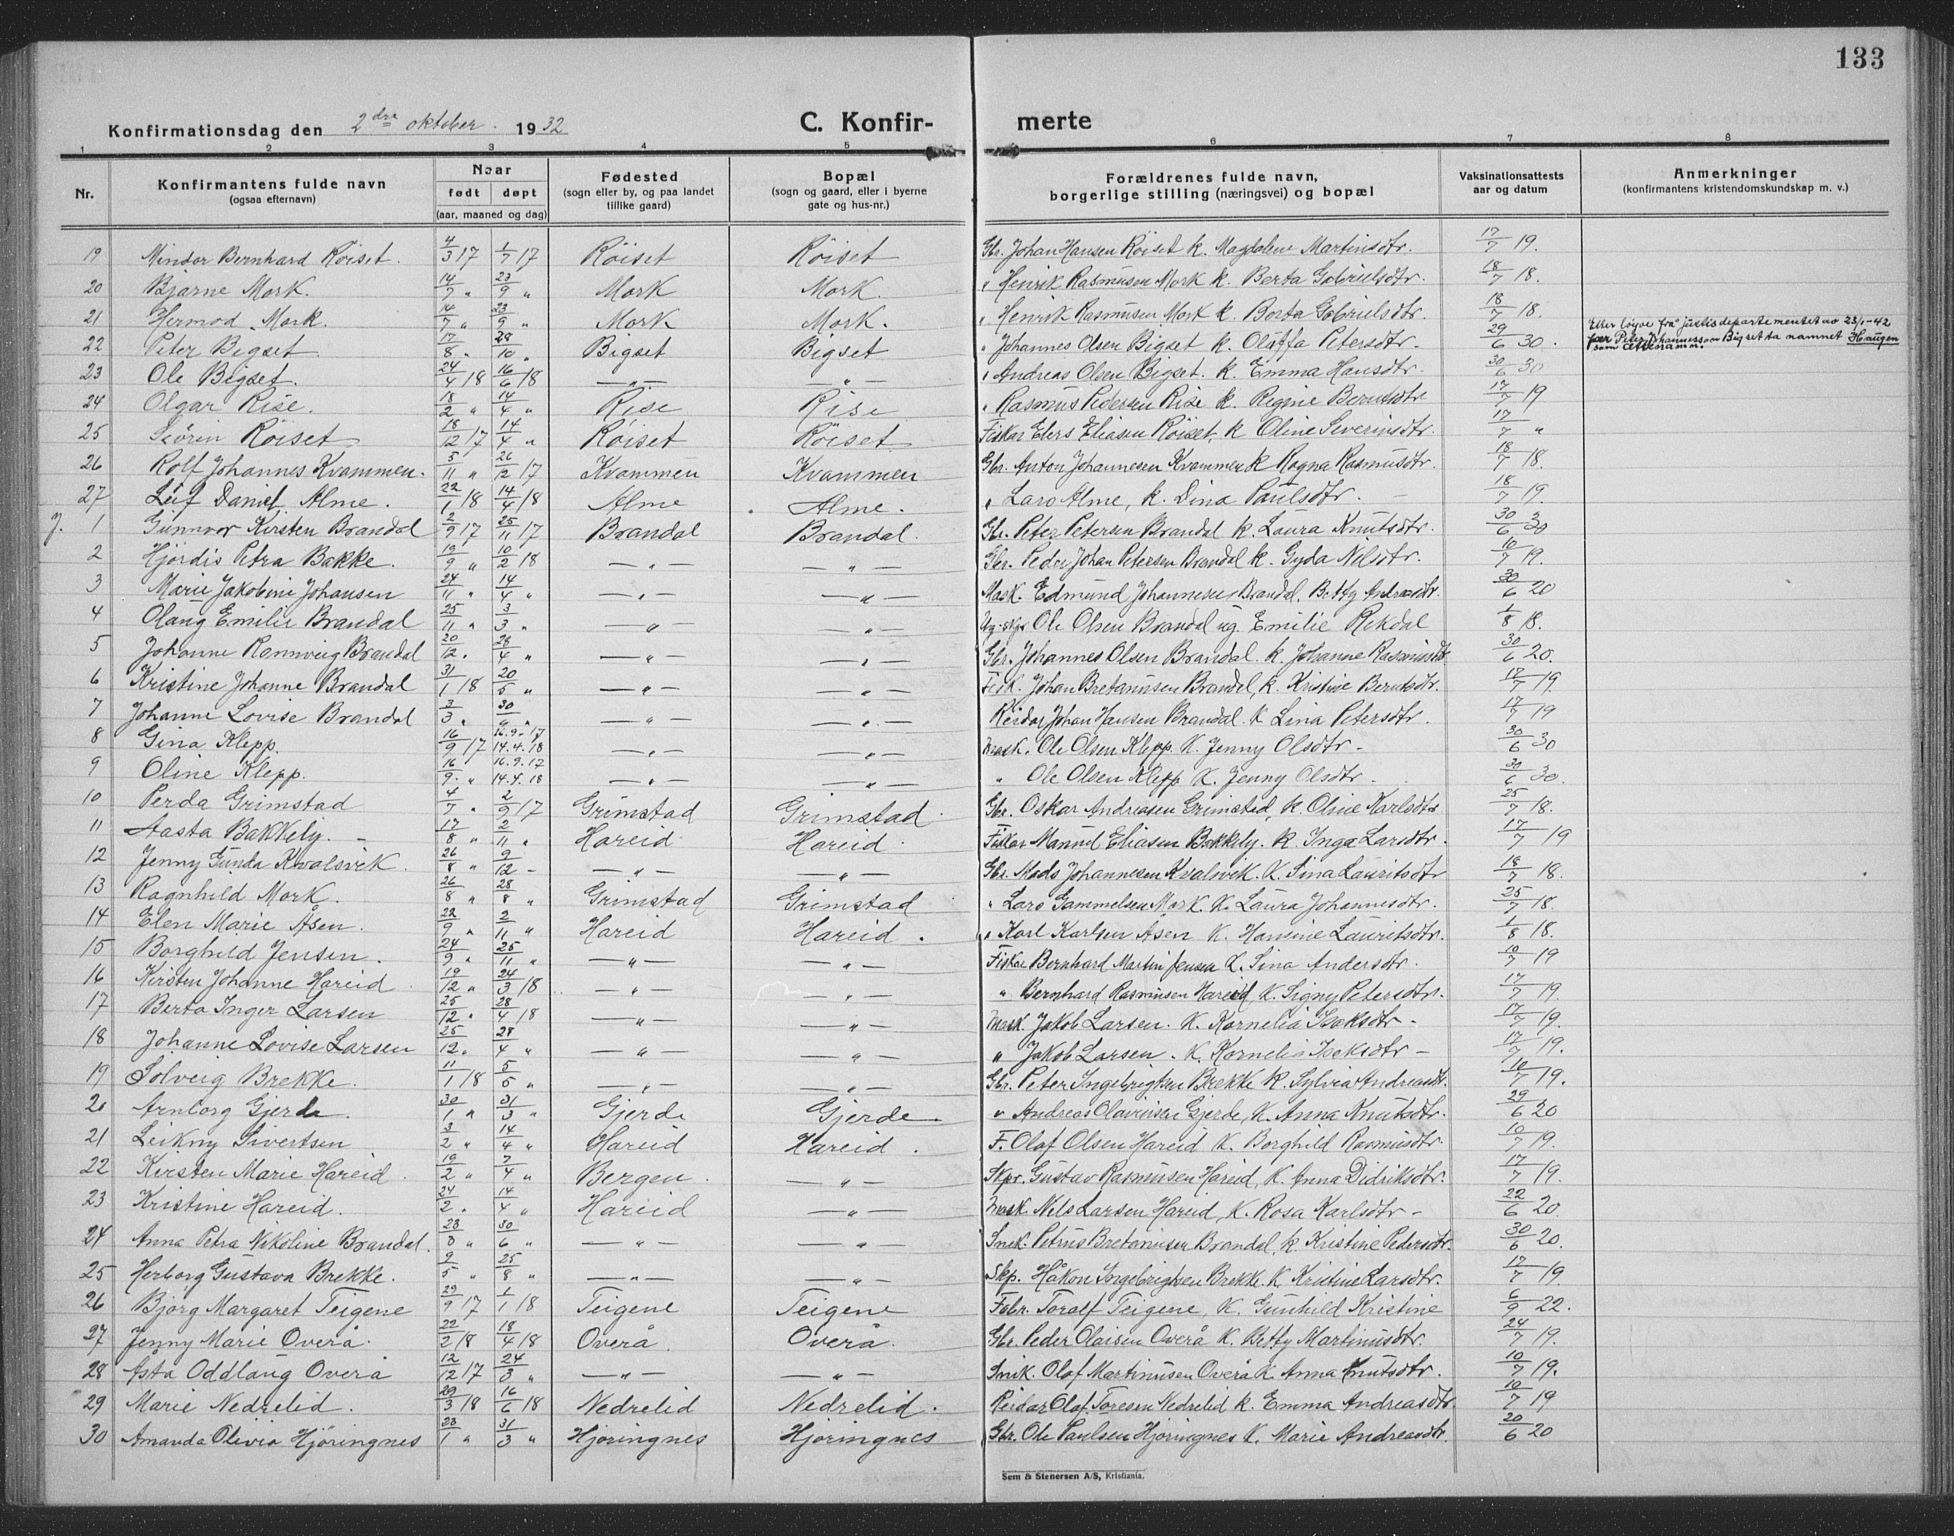 133
Konfirmationsdag den 2dre oktober 1932 C. Konfir- merte
1 2 3 4 5 6 7 8
Nr. Konfirmantens fulde navn (ogsaa efternavn) Naar født døpt (aar, maaned og dag) Fødested (sogn eller by, og paa landet tillike gaard) Bopæl (sogn og gaard, eller i byerne gate og hus-nr.) Forældrenes fulde navn, borgerlige stilling (næringsvei) og bopæl Vaksinationsattests aar og datum Anmerkninger (konfirmantens kristendomskundskap m. v.)
19 Mindor Bernhard Röiset. 4/3 17 1/7 17 Röiset Röiset Gbr. Johan Hansen Röiset k. Magdalene Martinsdtr. 17/7 19.
20 Bjarne Mork. 14/7 " 23/9 " Mork Mork. " Henrik Rasmussen Mork k. Berta Gabrielsdtr. 18/7 18.
21 Hermod Mork. 14/7 " 23/9 " Mork Mork. " Henrik Rasmussen Mork k. Berta Gabrielsdtr. 18/7 18.
22 Peter Bigset 17/8 " 28/10 " Bigset Bigset " Johannes Olsen Bigset k. Oluffa Petersdtr. 29/6 30. Etter löyve frå justisdepartementet av 23/1-42 før Peter Johannesson Bigset ta namnet Haugen som ættenamn.
23 Ole Bigset. 24/4 18 16/6 18 — " — — " — " Andreas Olsen Bigset. k. Emma Hansdtr. 30/6 30
24 Olgar Rise. 18/2 " 14/4 " Rise Rise " Rasmus Pedersen Rise k. Regine Berntsdtr 17/7 19
25 Sövrin Röiset 18/12 17 14/4 " Röiset Röiset Fiskar Elers Eliasen Röiset, k Oline Severinsdtr. 17/7 "
26 Rolf Johannes Kvammen. 5/11 " 26/2 17 Kvammen Kvammen Gbr. Anton Johannesen Kvammen k Ragna Rasmusdtr. 18/7 18.
27 Leif Daniel Alme. 22/1 18 14/4 18 Alme Alme. " Lars Alme, k. Dina Paulsdtr. 18/7 19.
J. 1 Gunnvor Kirsten Brandal 2/9 17 25/11 17 Brandal Brandal. Gbr. Peter Petersen Brandal k. Laura Knutsdtr. 30/6 30
2 Hjördis Petra Bakke. 19/9 " 10/2 18 — " — — " — Gbr. Peder Johan Petersen Brandal k. Gyda Nilsdtr. 10/7 19.
3 Marie Jakobine Johansen 24/11 " 14/4 " — " — — " — Mask. Edmund Johannesen Brandal. Betty Andreasdtr. 30/6 20
4 Olaug Emilie Brandal 25/11 " 3/3 " — " — — " — Ole Olsen Brandal ug. Emilie Rekdal 1/8 18.
5 Johanne Rannveig Brandal 20/12. 28/4 " — " — — " — Gbr. Johannes Olsen Brandal. k. Johanne Rasmusdtr 30/6 20.
6 Kristine Johanne Brandal 31/1 18 20/5 " — " — — " — Fisk. Johan Bretanusen Brandal, k. Kristine Berntsdtr. 17/7 19.
7 Johanne Lovise Brandal 3/3 " 30/6 " — " — — " — Reidar Johan Hansen Brandal. K Lina Petersdtr. 17/7 19
8 Gina Klepp. 16/9 17 16.9.-17 14.4.18 — " — — " — Mask. Ole Olsen Klepp. K. Jenny Olsdtr. 30/6 30
9 Oline Klepp. 16/9. " 16.9.17 14.4.18 — " — — " — " Ole Olsen Klepp K. Jenny Olsdtr. 30/6 30.
10 Perda Grimstad 4/7 " 2/9 17 Grimstad Grimstad. Gbr. Oskar Andreasen Grimstad, k Oline Karlsdtr 25/7 18.
11 Aasta Bakkely. 17/8 " 2/11 " Hareid Hareid. Fiskar Manuel Eliasen Bakkely. k. Inga Larsdtr. 17/7 19
12 Jenny Gunda Kvalsvik. 26/8 " 9/12 - — " — — " — Gbr. Mads Johannesen Kvalsvik. K. Sina Lauritsdtr 18/7 18.
13 Ragnhild Mork. 26/8 " 28/8 " Grimstad Grimstad " Lars Gammelsen Mork. K. Laura Johannesdtr. 25/7 18.
14 Elen Marie Åsen. 22/9 " 2/11 " Hareid Hareid. " Karl Karlsen Åsen K. Hansine Lauritsdtr. 1/8 18.
15 Borghild Jensen. 24/9 " 25/11 " — " — — " — Fiskar Bernhard Martin Jensen K. Sina Andersdtr. 10/7 19
16 Kirsten Johanne Hareid. 19/12 " 24/3 18 — " — — " — " Bernhard Rasmusen Hareid K. Signy Petersdtr. 17/7 19.
17 Berta Inger Larsen 25/12 " 28/4 18 — " — — " — Mask. Jakob Larsen. K. Kornelia Isaksdtr - 17/7 19.
18 Johanne Lovise Larsen 25/12. 28/4 " — " — — " — " Jakob Larsen. K. Kornelia Isaksdtr - 17/7 19.
19 Solveig Brekke. 11/1 18 5/5 " — " — — " — Gbr. Peter Ingebrigtsen Brekke k. Sylvia Andreasdtr. 10/7 19.
20 Arnborg Gjerde. 30/1 " 31/3 " Gjerde Gjerde " Andreas Olavusen Gjerde, K. Anna Knutsdtr. 29/6 20
21 Leikny Sivertsen 3/2 " 14/4 " Hareid Hareid. F. Olaf Olsen Hareid K. Borghild Rasmusdtr. 10/7 19.
22 Kirsten Marie Hareid. 19/2 " 7/4 " Bergen. — " — Skpr. Gustav Rasmusen Hareid, K. Anna Didriksdtr. 17/7 19.
23 Kristine Hareid. 24/2. 14/4 " Hareid — " — Mask Nels Larsen Hareid, K. Rosa Karlsdtr - 22/6 20.
24 Anna Petra Nikoline Brandal. 23/3 " 30/6 " — " — — " — Snek. Petrus Bretanusen Brandal, k Kristine Pedersdtr. 30/6 20.
25 Herborg Gustava Brekke. 9/5 " 25/8 " — " — — " — Skp. Håkon Ingebrigtsen Brekke K Kristine Larsdtr. 17/7 19.
26 Bjorg Margaret Teigene 29/9 17 1/1 18 Teigene Teigene Fabr. Toralf Teigene, K. Gunhild Kristine 6/9 22.
27 Jenny Marie Overå. 22/2 18 18/4 18 Overå. Overå. Gbr. Peder Olaisen Overå K. Betty Martinusdtr. 24/7 19.
28 Åsta Oddlaug Overå 12/12 17 24/3 " — " — — " — Snik. Olaf Martinusen Overå K. Anna Knutsdtr. 10/7 19.
29 Marie Nedrelid. 29/3 18 16/6 18 Nedrelid Nedrelid. Reidar Olaf Toresen Nedrelid k. Emma Andreasdtr. 10/7 19
30 Amanda Olivia Hjöringnes 23/1 " 31/3 " Hjöringnes Hjöringnes Gbr. Ole Paulsen Hjöringnes K. Marie Andreasdtr. 20/6 20
Sem & Stenersen A/S, Kristiania.